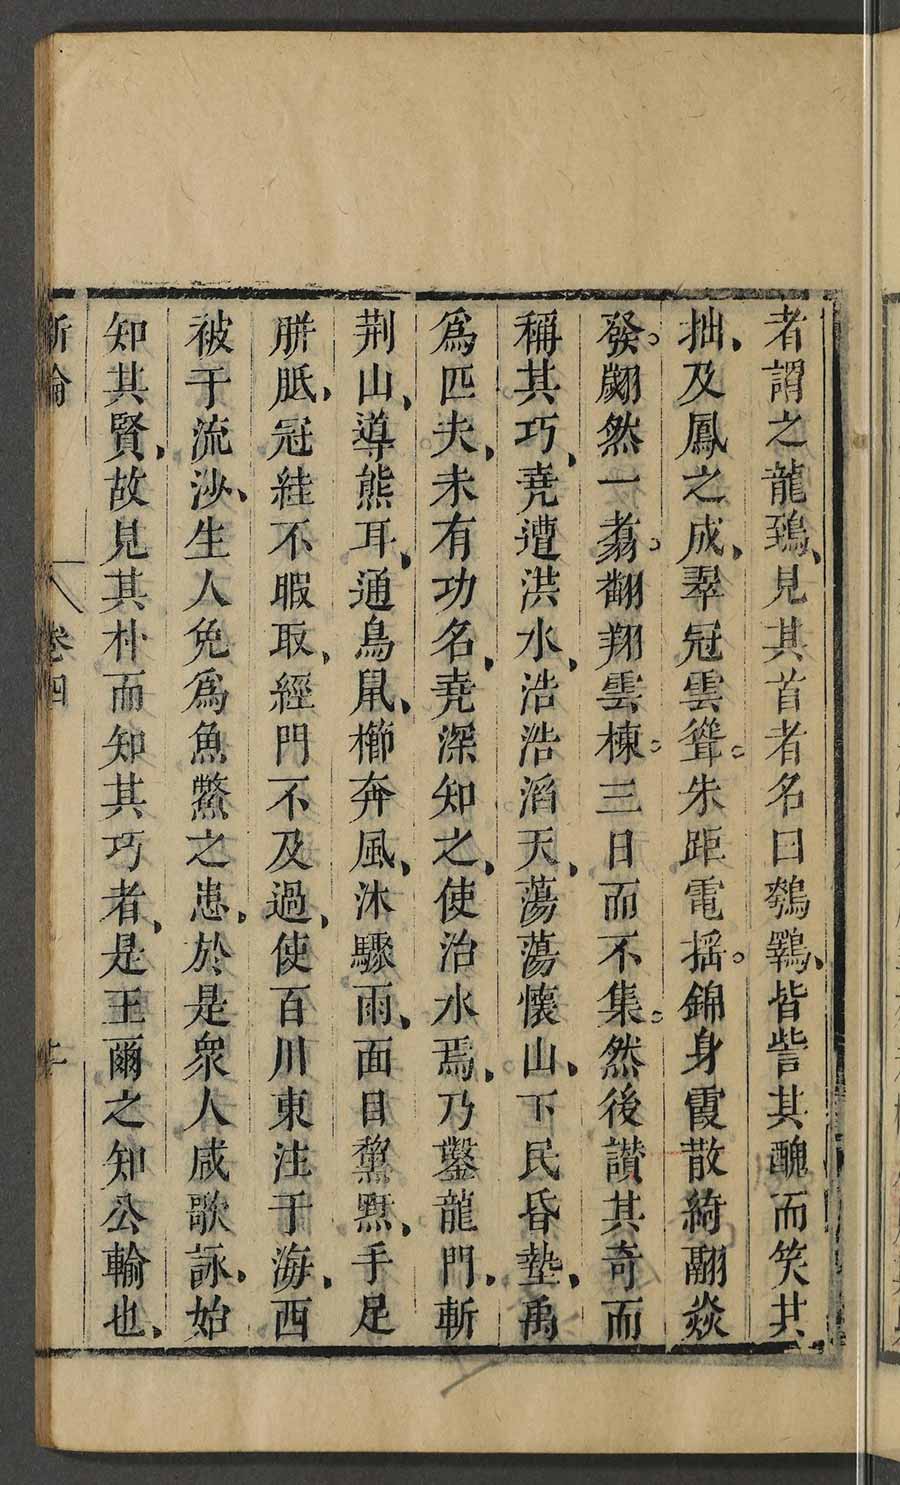 者謂之龍鵄、見其首者名曰鴮鸅、皆訾其醜而笑其
拙、及鳳之成、翠冠雲聳。朱距電揺。錦身霞散綺翮焱
發。翽然一翥。翻翔雲棟。三日而不集。然後讃其奇而
稱其巧、堯遭洪水、浩浩滔天、蕩蕩懐山、下民昏墊、禹
爲匹夫、未有功名、堯深知之、使治水焉、乃鑿龍門、斬
荆山、導熊耳、通鳥鼠、櫛奔風、沐驟雨、面目黧㸃、手足
胼胝、冠絓不暇取、經門不及過、使百川東注于海、西
被于流沙、生人免爲魚鱉之患、於是衆人咸歌詠、始
知其賢、故見其朴而知其巧者、是王爾之知公輸也、
新論
卷四